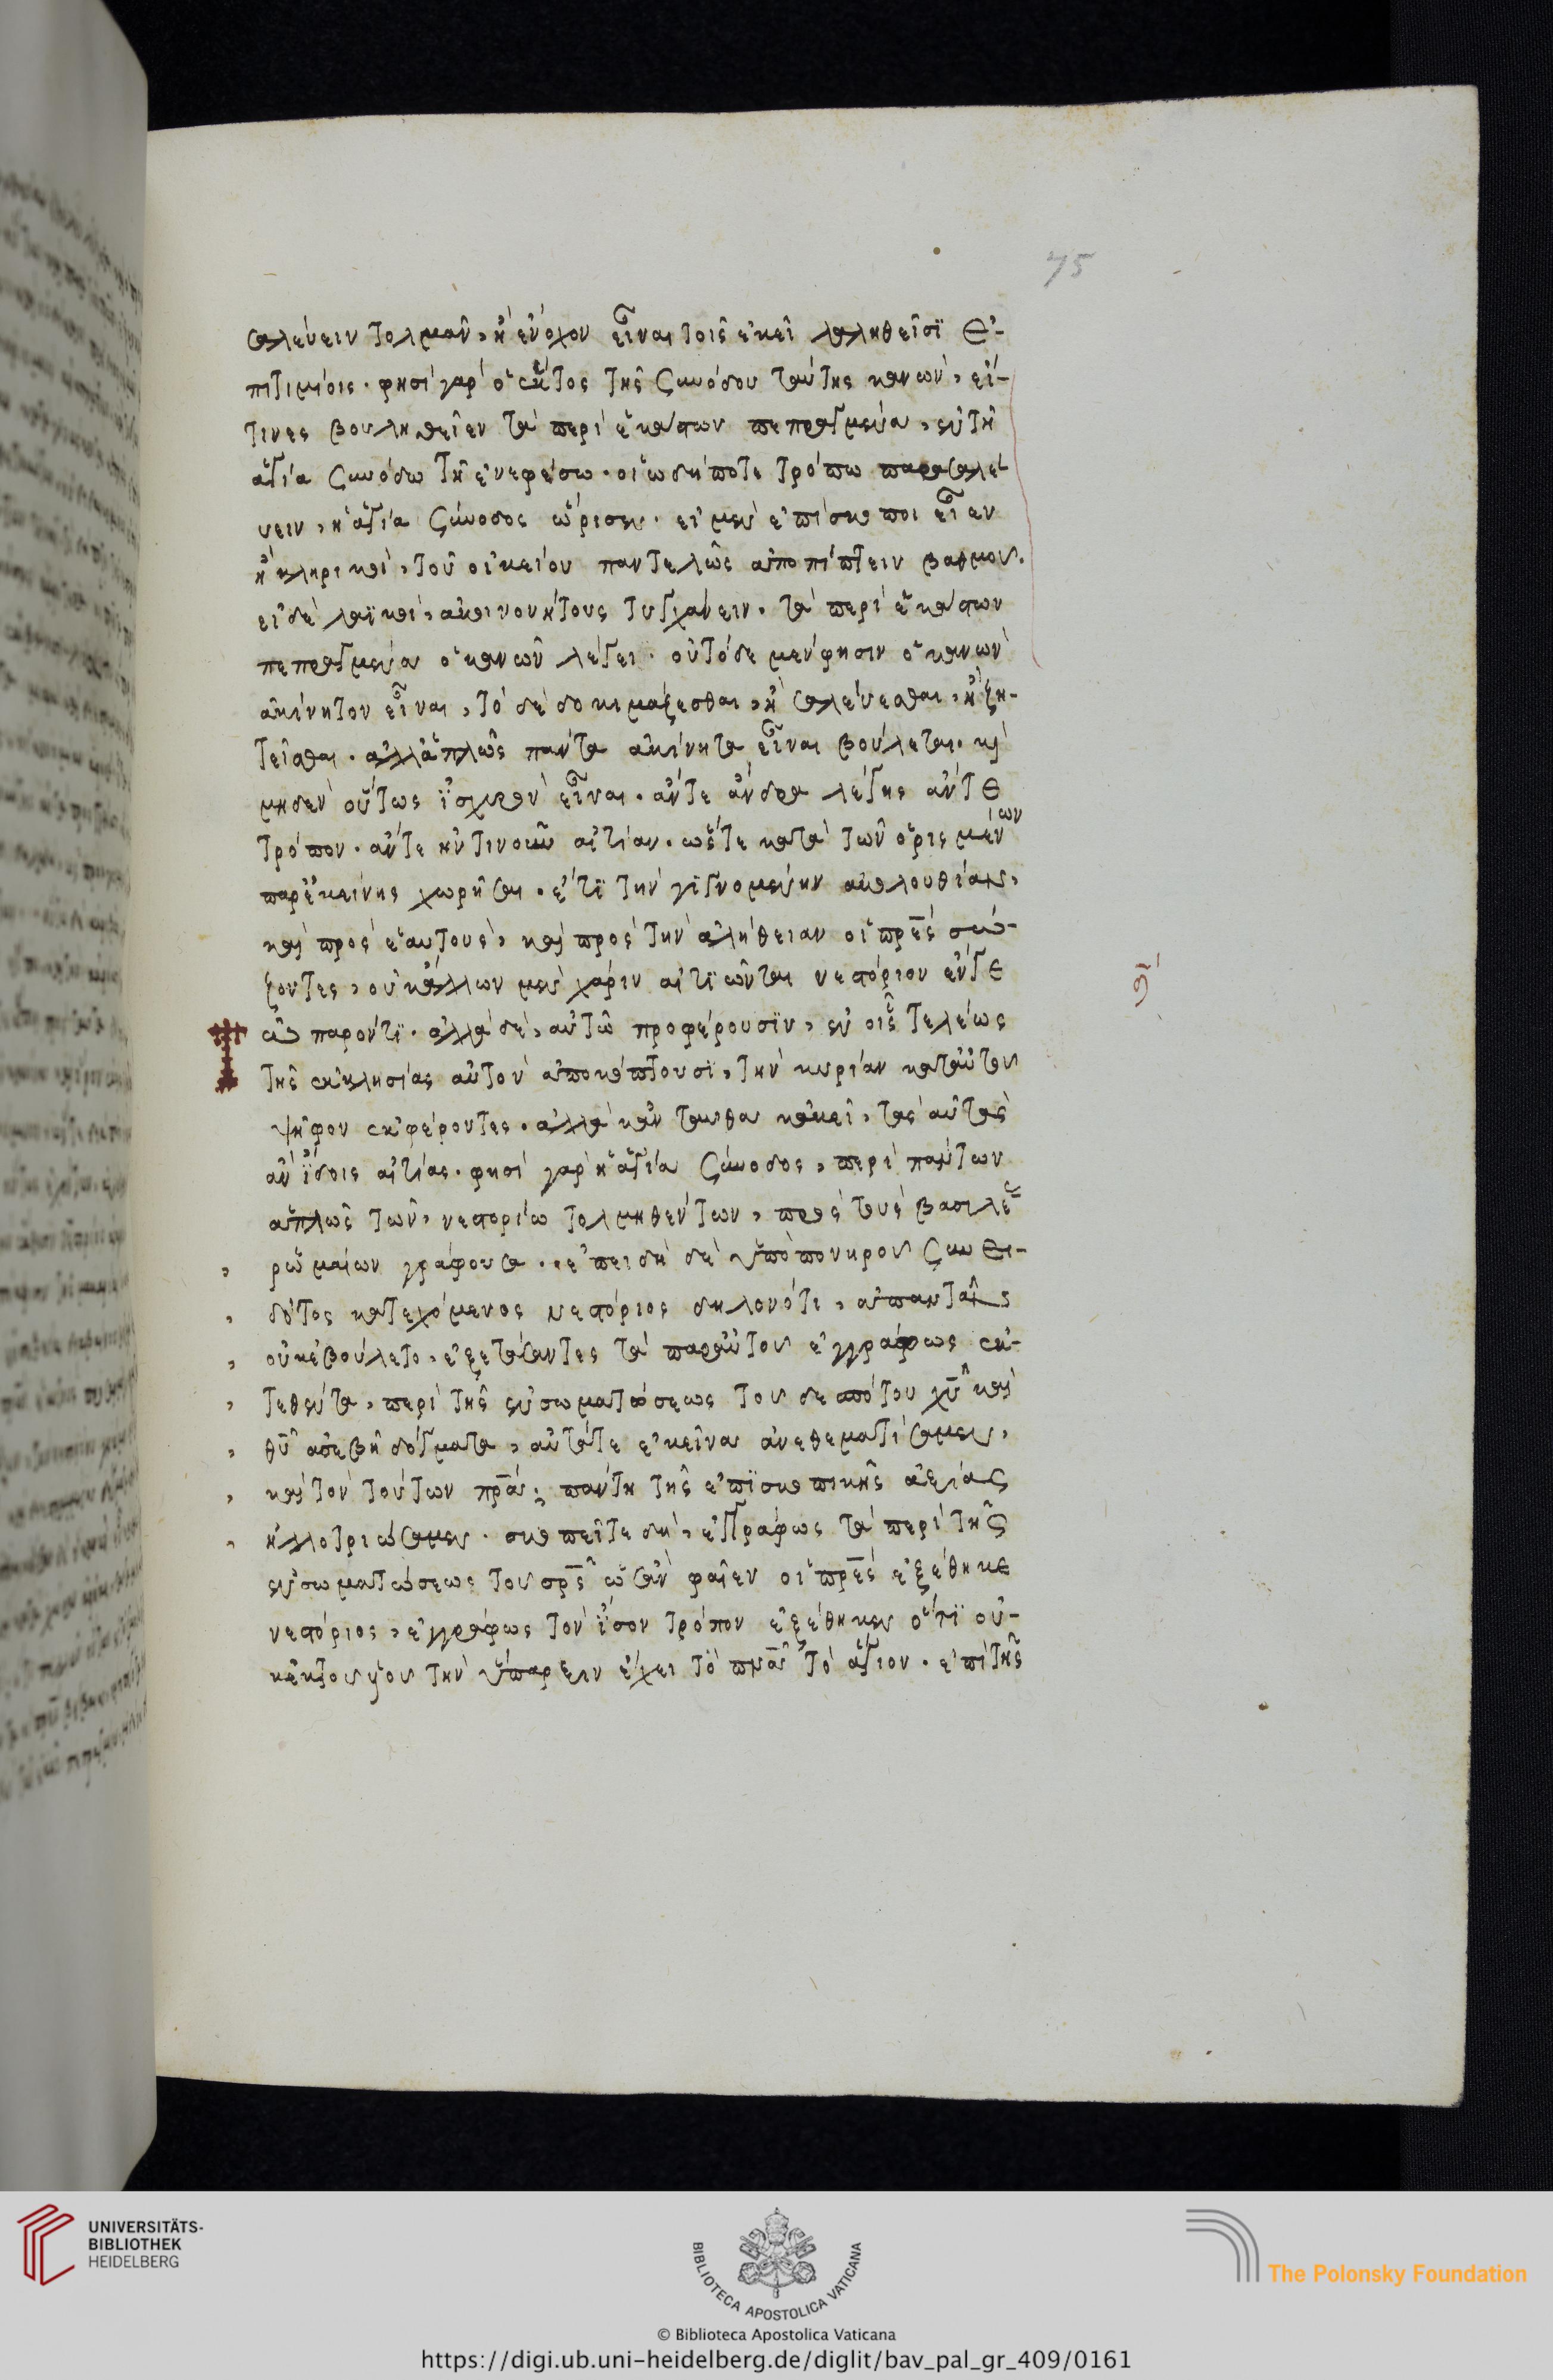 75
σαλεύειν τολμᾶν, ἢ ἔνοχον εἶναι τοῖς ἐκεῖ λαληθεῖσϊ ἐ-
πιτιμίοις. φησὶ γὰρ ὁ ἕκτος τῆς συνόδου ταύτης κανών, εἴ-
τινες βουληθεῖεν τὰ περὶ ἑκάστων πεπραγμένα, ἐν τῆ
ἁγία συνόδω τῆ ἐν ἐφέσω. οἱωδήποτε τρόπω παρασαλεύ
ειν, ἡ ἁγία σύνοδος ὥρισεν. εἰ μὲν ἐπίσκοποι εἶεν
ἢ κληρικοὶ, τοῦ οἰκείου παντελῶς ἀποπίπτειν βαθμοῦ.
εἰ δὲ λαϊκοὶ, ἀκοινονήτους τυγχάνειν. τὰ περὶ ἑκάστων
πεπραγμένα ὁ κανὼν λέγει. οὐ τόδε μέν φησιν ὁ κανὼν
ἀκίνητον εἶναι, τὸ δὲ δοκιμάζεσθαι, ἢ σαλεύεσθαι, ἢ ζη-
τεῖσθαι. ἀλλ' ἁπλῶς πάντα ἀκίνητα εἶναι βούλεται. καὶ
μηδὲν οὕτως ἰσχυρὸν εἶναι. ἄν τε ἄνδρα λέγης ἄν τε
τρόπον. ἄν τε ἡντινοῦν αἰτίαν. ὥστε κατὰ τῶν ὁρισμένων
παρ' ἐκείνης χωρῆσαι. ἔτϊ τὴν γϊγνομένην ἀκολουθίαν,
καὶ πρὸς ἑαυτοὺς, καὶ πρὸς τὴν ἀλήθειαν οἱ πρες σώ-
ζοντες, οὐκ ἄλλων μὲν χάριν αἰτϊῶνται νεστόριον ἔν γε
παρόντϊ. ἄλλα δὲ, αὐτῶ προφέρουσϊν, ἐν οἷς τελέως
τῆς ἐκκλησίας αὐτὸν ἀποκόπτουσϊ, τὴν κυρίαν κατ' αὐτοῦ
ψῆφον ἐκφέροντες. ἀλλὰ κἀν ταυθα κἀκεῖ, τὰς αὐτὰς
ἂν ἴδοις αἰτίας. φησὶ γὰρ ἡ ἁγία σύνοδος, περὶ πάντων
ἁπλῶς τῶν, νεστορίω τολμηθέντων, πρὸς τοὺς βασιλε
ῥωμαίων γράφουσα. ἐπειδὴ δὲ ὑπὸ πονηροῦ συνει-
δότος κατεχόμενος νεστόριος δηλονότι, ἀπαντᾶν
οὐκ ἐβούλετο, ἐξετάσαντες τὰ παρ' αὐτοῦ ἐγγράφως ἐκ-
τεθέντα, περὶ τῆς ἐνσωματώσεως τοῦ δεσπότου χῦ καὶ
θῦ ἀσεβῆ δόγματα, αὐτά τε ἐκεῖνα ἀνεθεματίσαμεν,
καὶ τὸν τούτων πρᾶ πάντη τῆς ἐπϊσκοπικῆς ἀξίας
ἠλλοτριώσαμεν. σκοπεῖτε δὴ, ἐγγράφως τὰ περὶ τῆς
ἐνσωματώσεως τοῦ σρς ὡσὰν φαῖεν οἱ πρες ἐξέθηκε
νεστόριος, ἐγγράφως τὸν ἴσον τρόπον ἐξέθηκεν ὅτϊ οὐ-
κ ἐκ τοῦ υἱοῦ τὴν ὕπαρξιν ἔχει τὸ πνᾶ τὸ ἅγιον. ἐπὶ τῆς
UNIVERSITÄTS-
BIBLIOTHEK
HEIDELBERG
BIBLIOTECA APOSTOLICA VATICANA
The Polonsky Foundation
© Biblioteca Apostolica Vaticana
https://digi.ub.uni-heidelberg.de/diglit/bav_pal_gr_409/0161